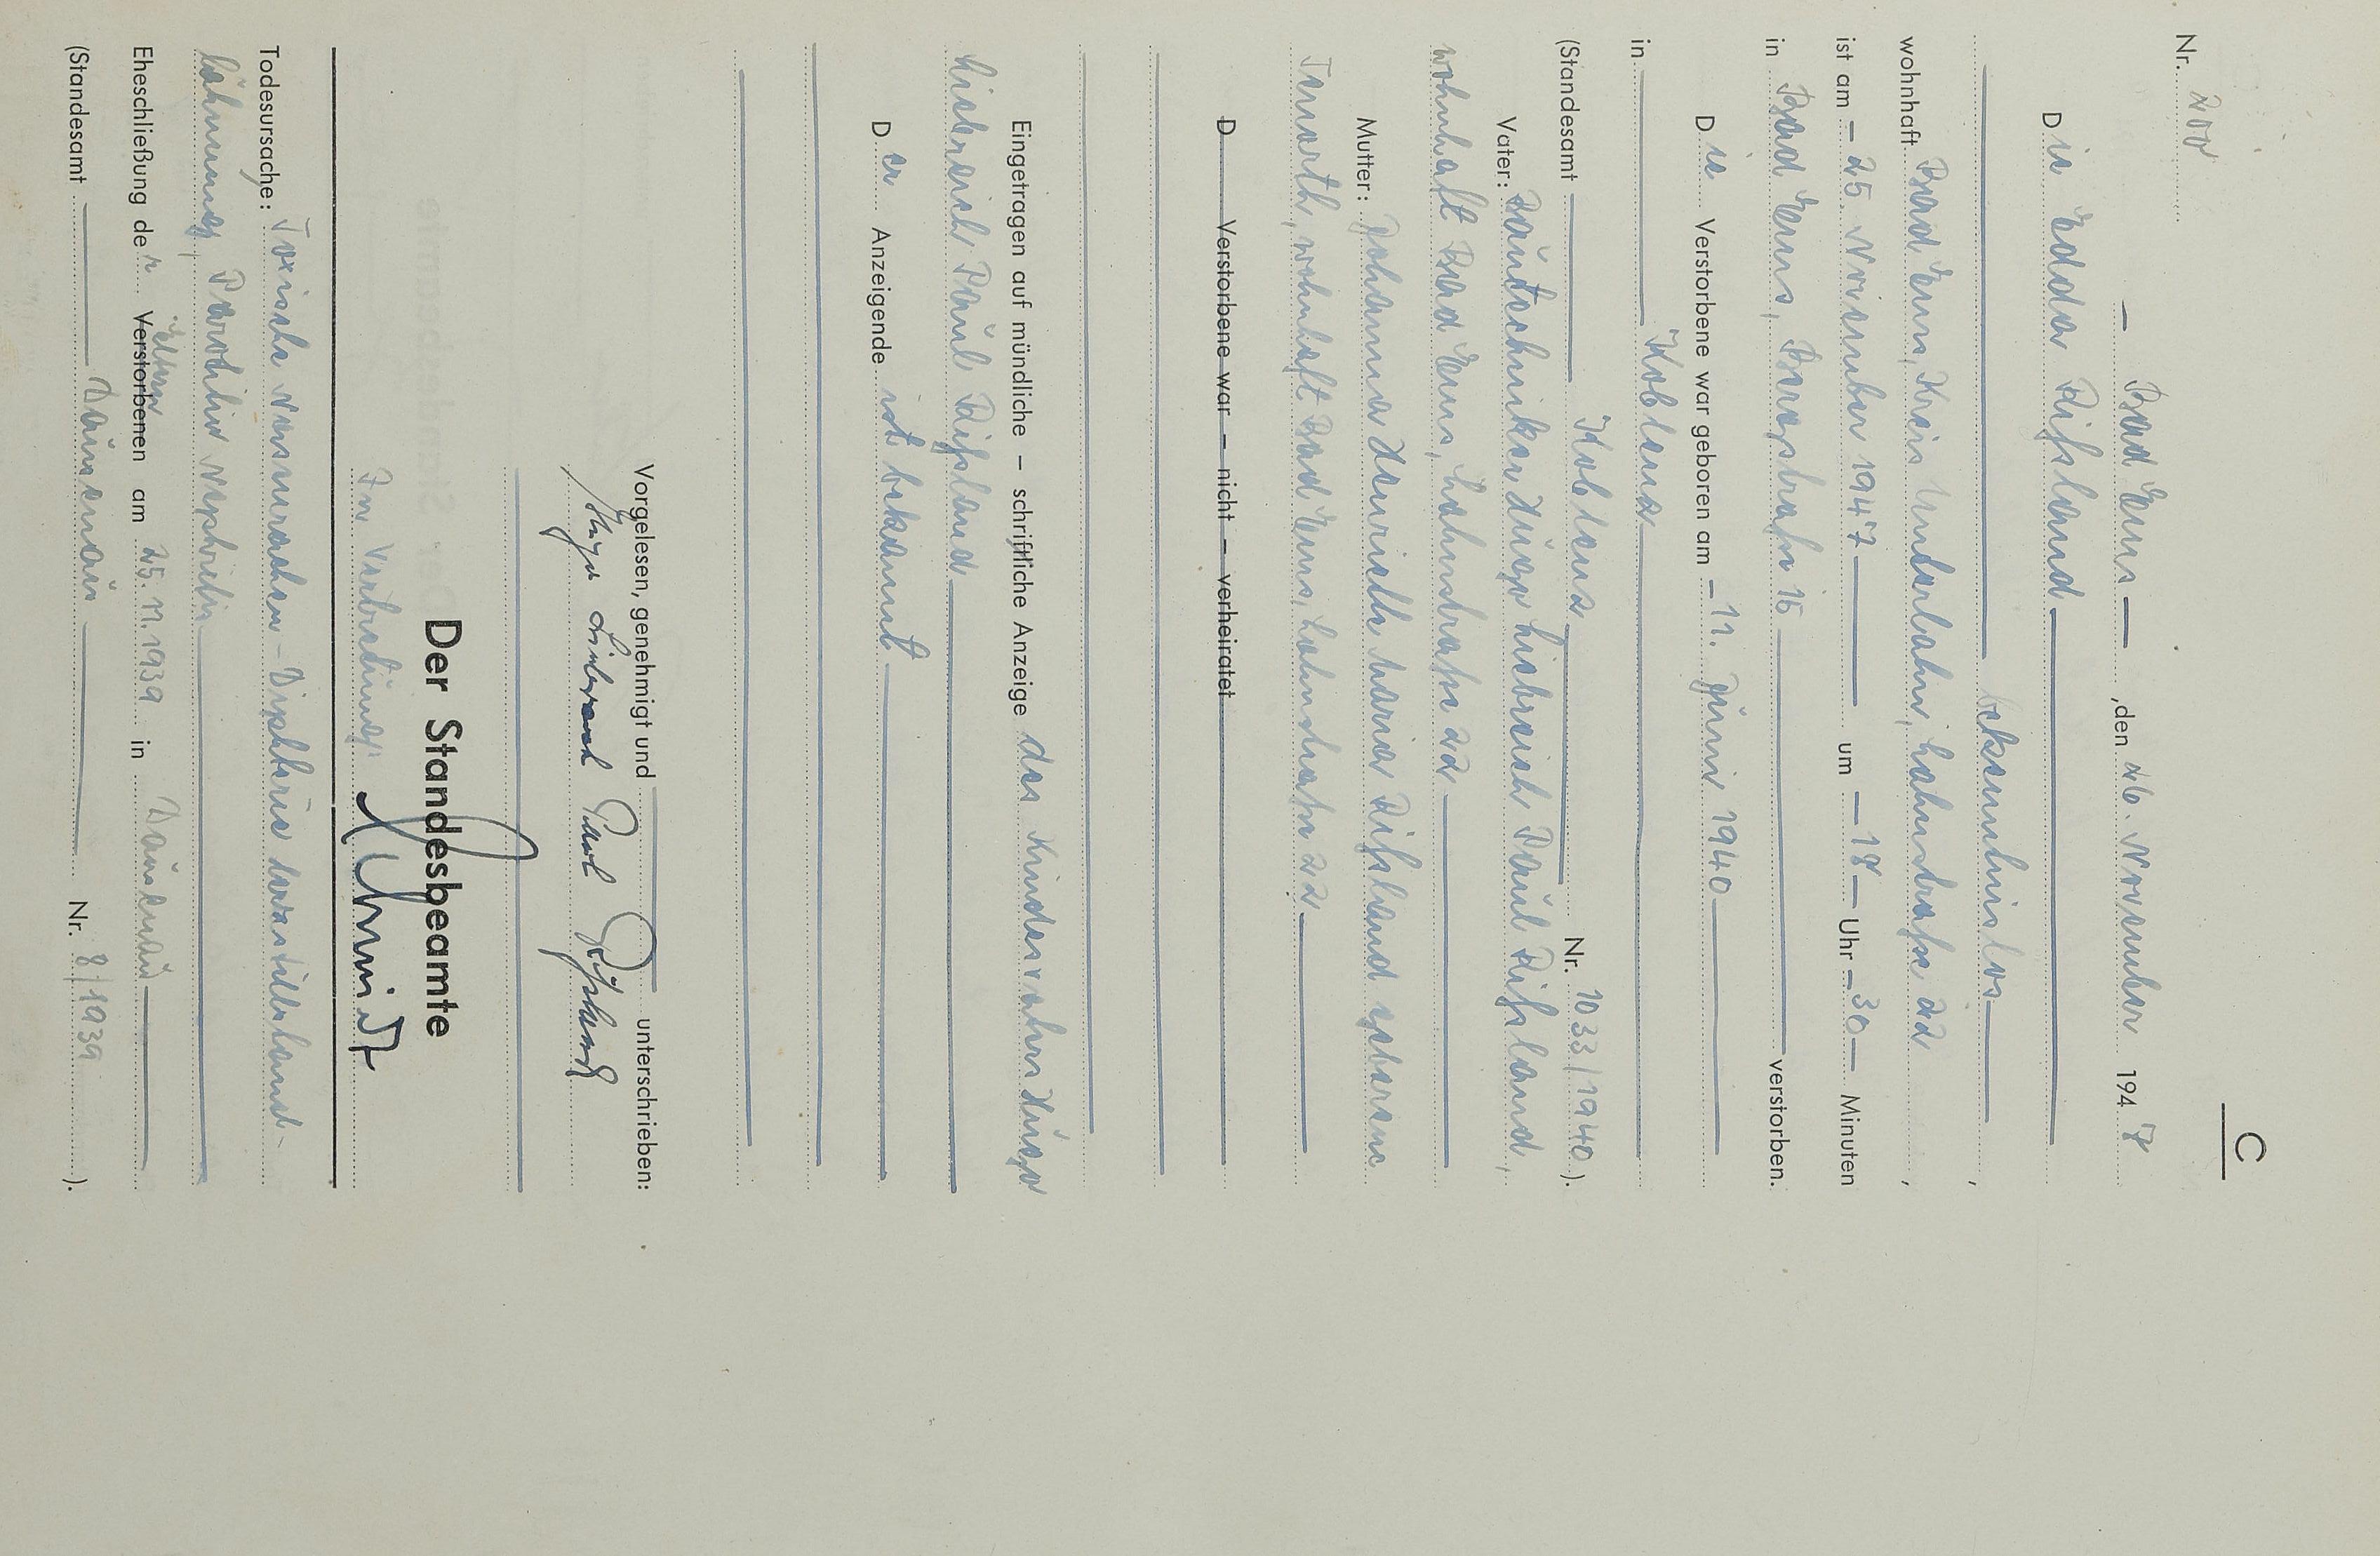 C
Nr. 200
— Bad Ems —, den 26. November 1947
Die Edda Rißland
bekenntnislos,
wohnhaft Bad Ems, Kreis Unterlahn, Lahnstraße 22,
ist am — 25. November 1947 — um — 18 — Uhr — 30 — Minuten
in Bad Ems, Burgstraße 16 verstorben.
Die Verstorbene war geboren am — 11. Juni 1940
in Koblenz
(Standesamt Koblenz Nr. 1033/1940).
Vater: Bautechniker Hugo Liebreich Paul Rißland,
wohnhaft Bad Ems, Lahnstraße 22
Mutter: Johanna Henriette Maria Rißland geborene
wohnhaft Bad Ems, Lahnstraße 22
D Verstorbene war – nicht – verheiratet
Eingetragen auf mündliche – schriftliche Anzeige des Kindesvaters Hugo
Liebreich Paul Rißland
Der Anzeigende ist bekannt
Vorgelesen, genehmigt und unterschrieben:
Hugo Liebreich Paul Rißland
Der Standesbeamte
In Vertretung: Schmidt
Todesursache: Toxische Diphterie
lähmung,
Eheschließung der Verstorbenen Eltern am 25.11.1939 in Dausenau
(Standesamt Dausenau Nr. 8/1939).